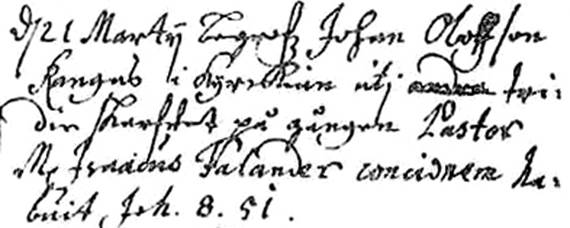 d. 21 Martÿ begrofz Johan Oloffson
Kangas i Kyrckian uti andra tri:
die skarfftet på gången Pastor
M. Isaacus Falander concionem ha:
buit, Joh. 8. 51.